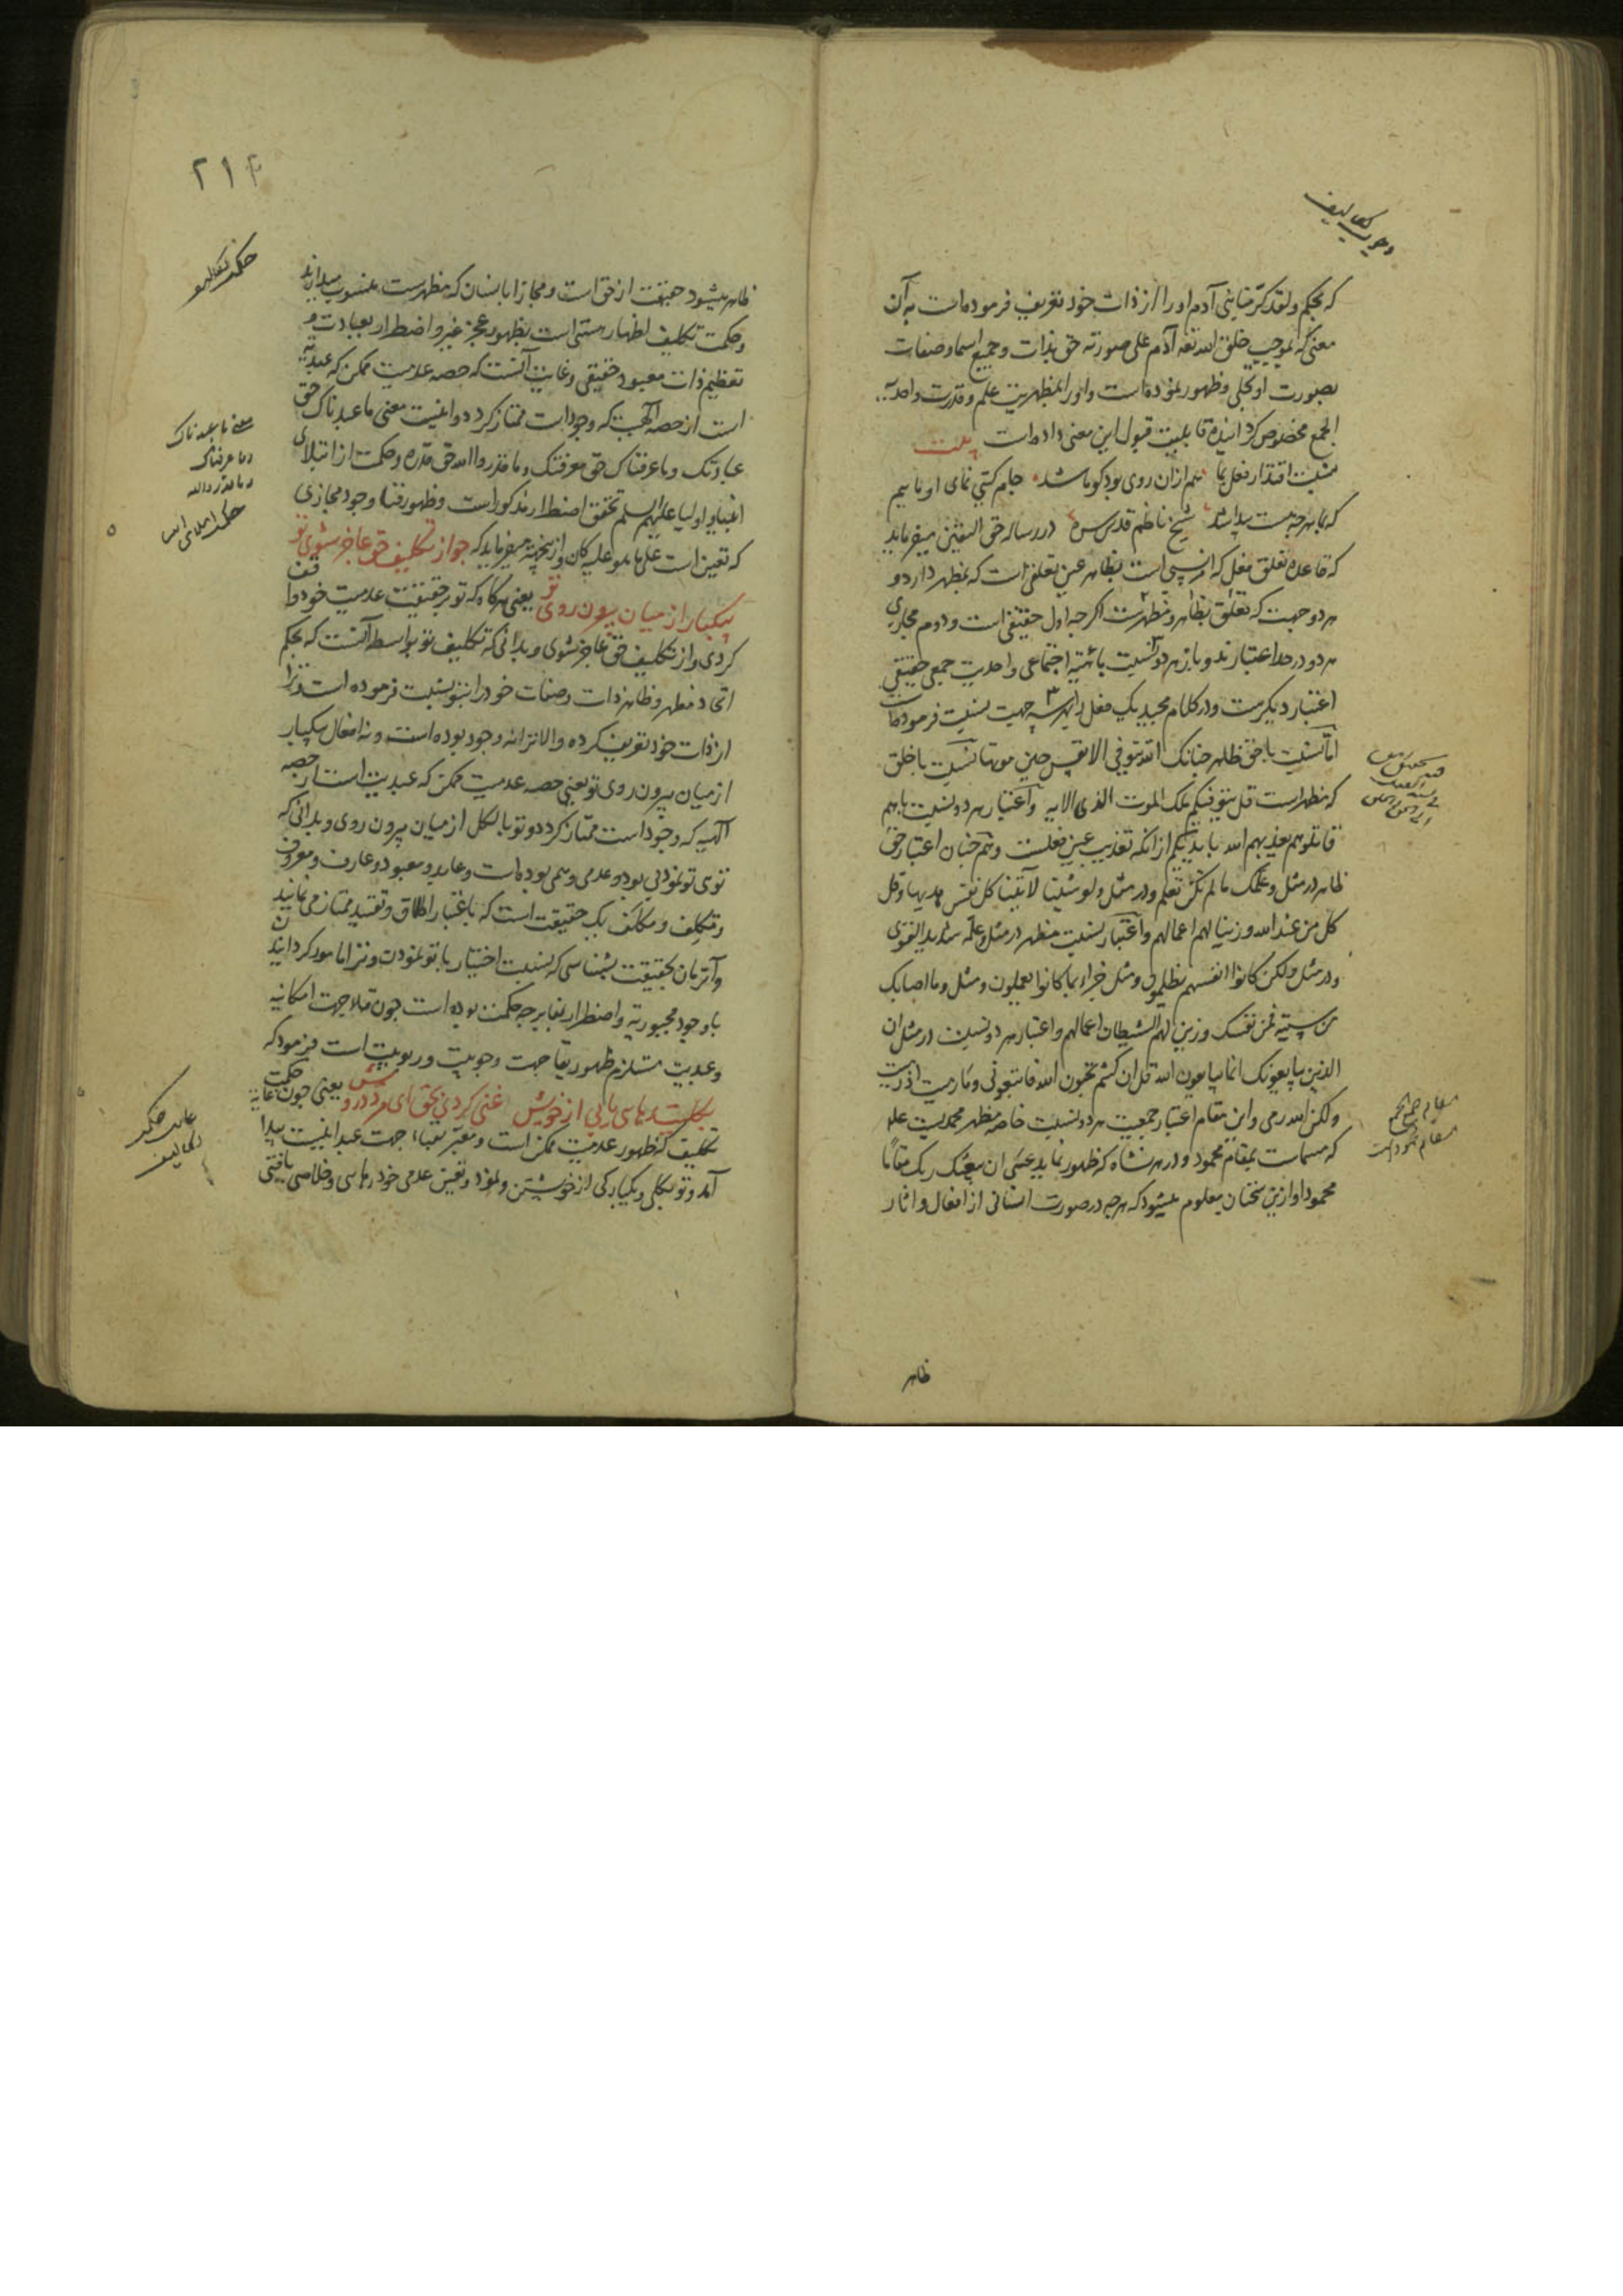 که بحکم ولقد کرمنا بنی آدم او را از ذات خود تعریف فرموده است به آن
معنی که بموجب خلق الله تعالی آدم علی صورته حق بذات و جمیع اسما و صفات
بصورت او تجلی و ظهور نموده است و او را بمظهریت علم و قدرت و احدیة
الجمع مخصوص گردانیده قابلیت قبول این معنی داده است بیت
نسبت اقتدار فعل بما هم از ان روی بود کو ما شد جام گیتی نمای او ماییم
که بما هرچه هست پیدا شد شیخ ناظم قدس سره در رساله حق الیقین میفرماید
که قاعده تعلق فعل که اثر نسبی است بظاهر عین تعلقی است که بمظهر دارد و
هر دو جهت که تعلق بظاهر و مظهرست اگرچه اول حقیقی است و دوم مجازی
هر دو در حد اعتبارند و باز هر دو نسبت باهیئة اجتماعی و احدیت جمعی حقیقی
اعتبار دیگرست و در کلام مجید یک فعل را بهر سه جهت نسبت فرموده است
اما نسبت با حق ظاهر چنانک الله یتوفی الانفس حین موتها نسبت با خلق
که مظهر است قل یتوفیکم ملک الموت الذی الایه و اعتبار هر دو نسبت باهم
قاتلوهم یعذبهم الله بایدیکم از انکه تعذیب عین فعلست و هم چنان اعتبار حق
ظاهر در مثل و علمک ما لم تکن تعلم و در مثل و لو شئنا لآتینا کل نفس هدیها و قل
کل من عند الله و زینا لهم اعمالهم و اعتبار نسبت مظهر در مثل و علمه شدید القوی
و در مثل ولکن کانوا انفسهم یظلمون و مثل جزاء بما کانوا یعملون و مثل و ما اصابک
من سیئة فمن نفسک و زین لهم الشیطان اعمالهم و اعتبار هر دو نسبت در مثل ان
الذین یبایعونک انما یبایعون الله قل ان کنتم تحبون الله فاتبعونی و ما رمیت اذ رمیت
ولکن الله رمی و این مقام اعتبار جمعیت هر دو نسبت خاصه مظهر محمدیست علم
که مسماست بمقام محمود و در هر نشاه که ظهور نماید عسی ان یبعثک ربک مقاما
محمودا و ازین سخنان معلوم میشود که هرچه در صورت انسانی از افعال و اثار
ظاهر
۲۱۴
ظاهر میشود حقیقت از حق است و مجازا بانسان که مظهرست منسوب میدارند
و حکمت تکلیف اظهار هستی است بظهور عجز غیر و اضطرار بعبادت و
تعظیم ذات معبود حقیقی و غایت آنست که حصه عدمیت ممکن که عبدیة
است از حصه الهیت که وجود است ممتاز گردد و اینست معنی ما عبدناک حق
عبادتک و ما عرفناک حق معرفتک و ما قدروا الله حق قدره و حکمت از ابتلای
انبیا و اولیا علیهم السلم تحقق اضطرار مذکور است و ظهور فنا وجود مجازی
که تعین است علی ما هو علیه کان و ازینجهة میفرماید که جو از تکلیف حق عاجز شوی تو
بیکبار از میان بیرون روی تو یعنی هرگاه که تو بر حقیقت عدمیت خود واقف
گردی و از تکلیف حق عاجز شوی و بدانی که تکلیف تو بواسطه آنست که بحکم
اتحاد مظهر و ظاهر ذات و صفات خود را بتو نسبت فرموده است و ترا
از ذات خود تعریف کرده و الا ترا نه وجود بوده است و نه افعال بیکبار
از میان بیرون روی تو یعنی حصه عدمیت ممکن که عبدیت است از حصه
الهیه که وجود است ممتاز گردد و تو بالکل از میان بیرون روی و بدانی که
توی تو نمود بی بود و عدمی وهمی بوده است و عابد و معبود و عارف و معروف
و مکلِف و مکلَف یک حقیقت است که باعتبار اطلاق و تقیید ممتاز می نمایند
و آن زمان بحقیقت بشناسی که نسبت اختیار با تو نمودن و ترا مامور گردانیدن
با وجود مجبوریة و اضطرار بنا بر چه حکمت بوده است چون فنا جهت امکانیه
و عدمیت مستلزم ظهور بقا جهت وجوبیت و ربوبیت است فرمود که
بکلیت رهایی یابی از خویش غنی گردی بحق ای مرد درویش یعنی چون غایة حکمت
تکلیف که ظهور عدمیت ممکن است و معبر بفناء جهت عبدانیست پیدا
آمد و تو بکلی و یکبارگی از خویشتن و نمود و تعین عدمی خود رهایی و خلاصی یافتی
حکمت تکالیف
معنی ما عبدناک
و ما عرفناک
و ما قدروا الله
حکمت ابتلای انبیا
غایت حکمت
تکالیف